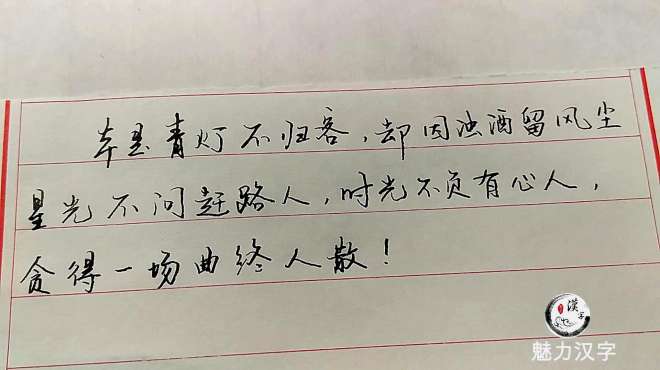 本是青灯不归客，却因浊酒留风尘
星光不问赶路人，时光不负有心人，
贪得一场曲终人散！
漢字
魅力汉字